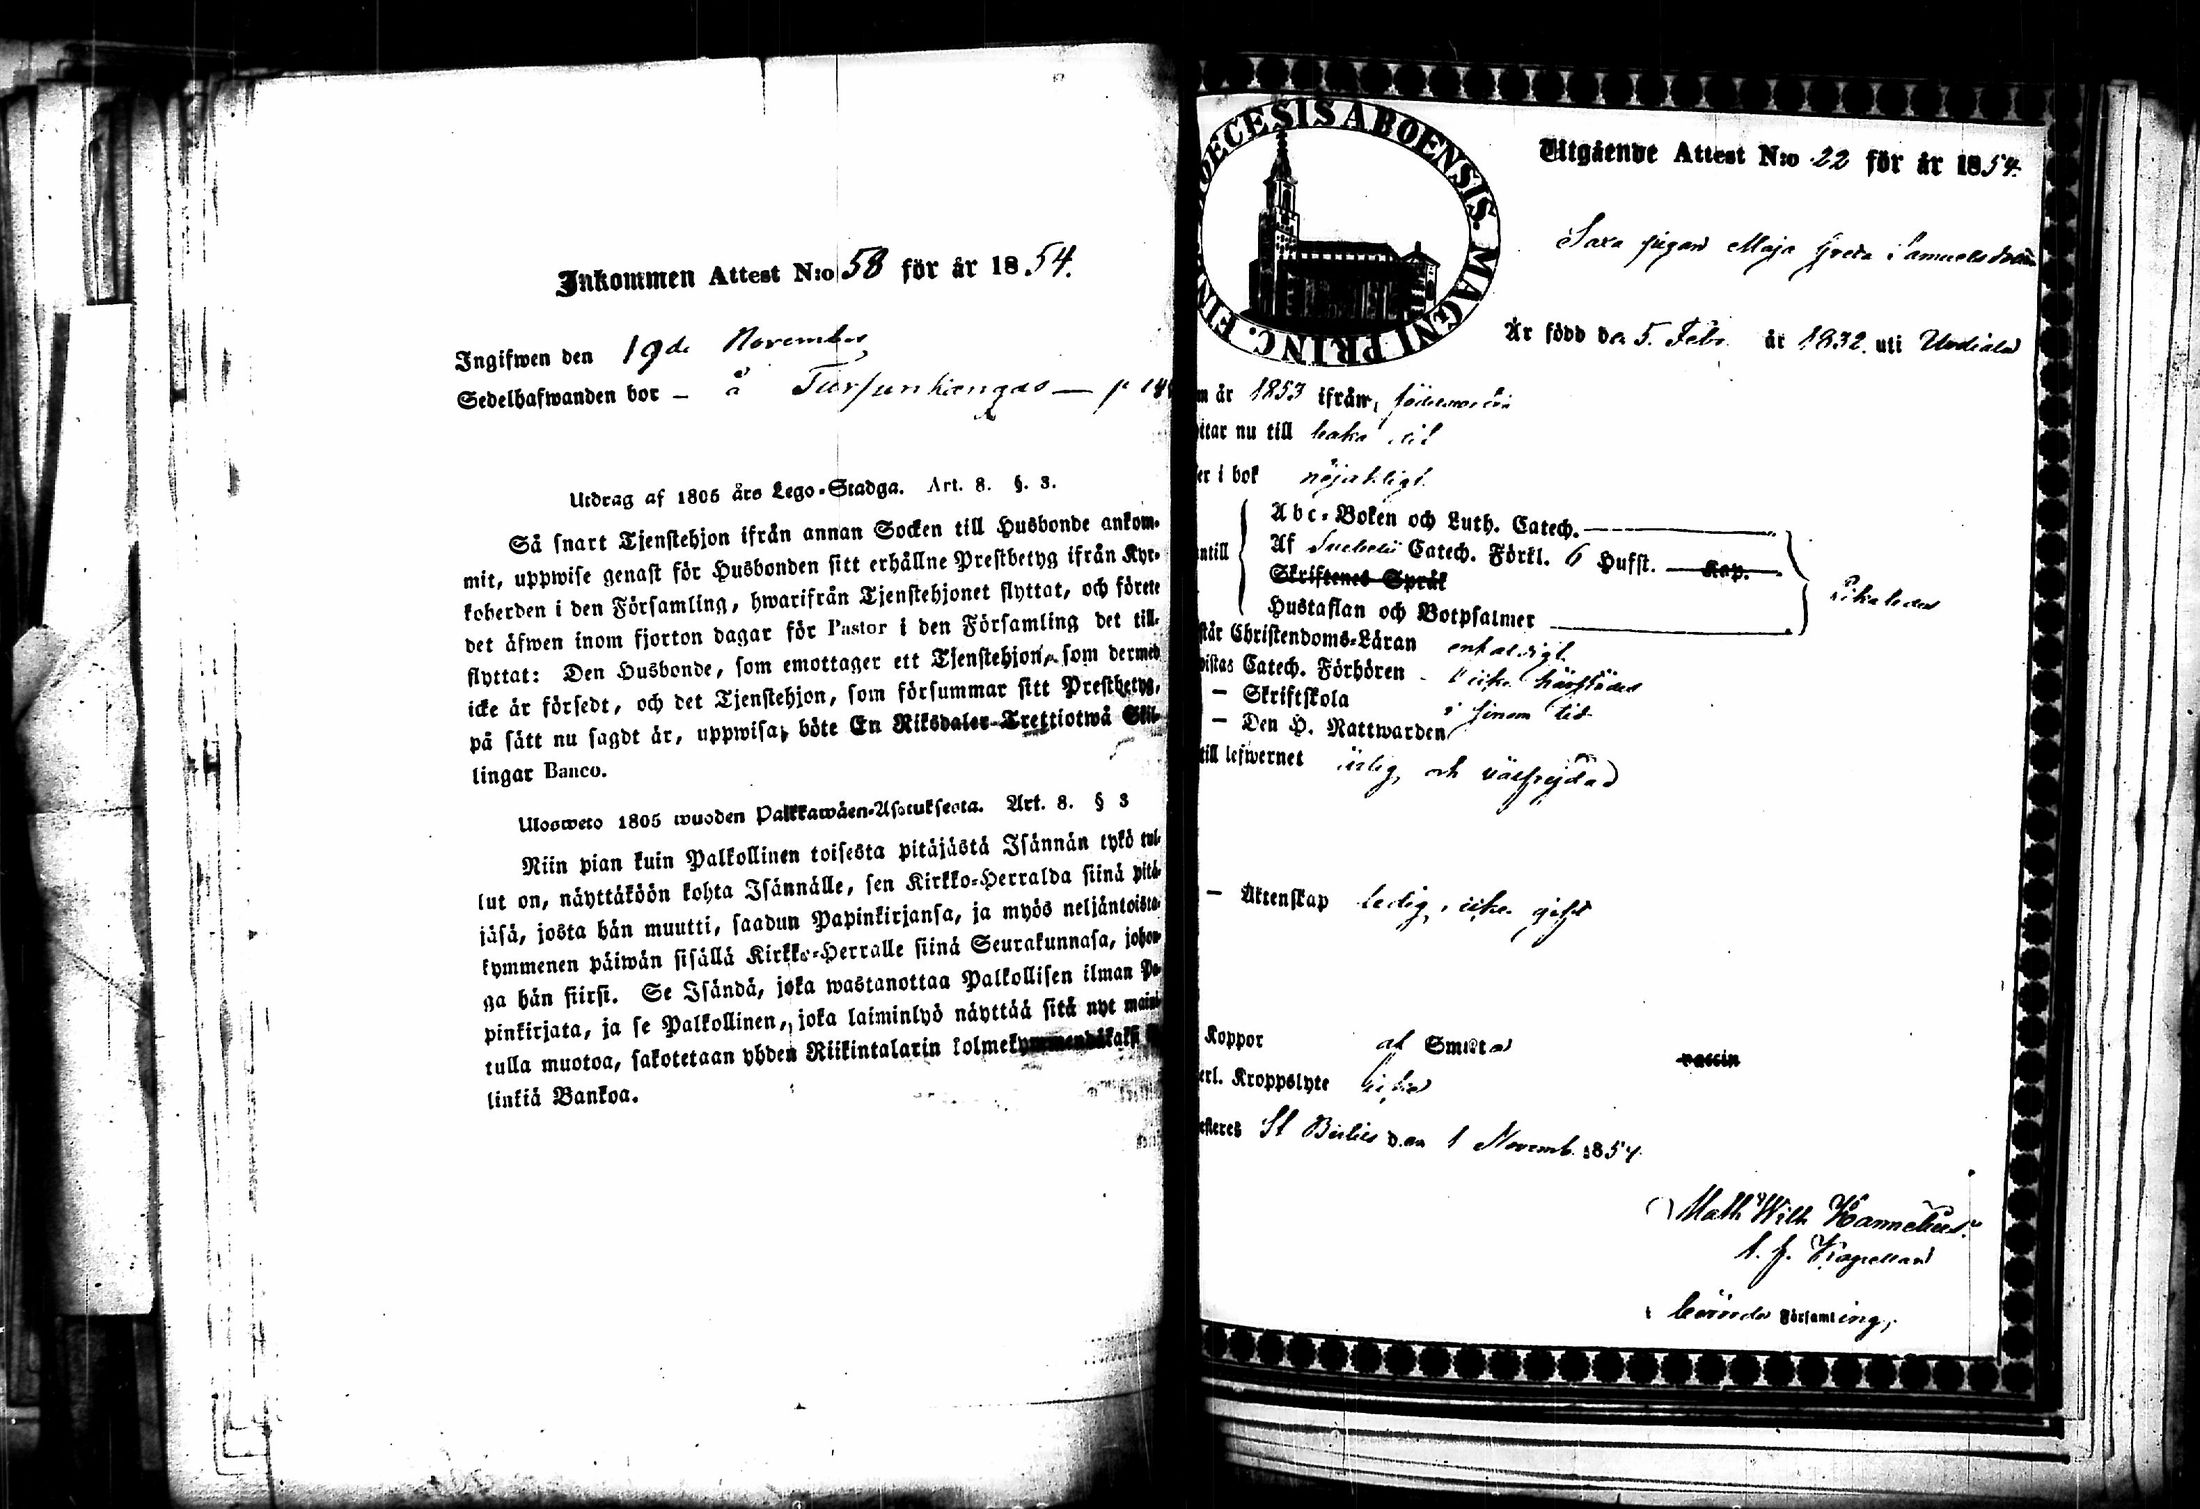 Inkommen Attest N:o 58 för år 1854.
Ingifwen den 19de November
Sedelhafwanden bor – å Tursunkangas — p
Utdrag af 1805 års Lego-Stadga. Art. 8. §. 3.
Så snart Tjenstehjon ifrån annan Socken till Husbonde ankom-
mit, uppwise genast för Husbonden sitt erhållne Prestbetyg ifrån Kyr-
koherden i den Församling, hwarifrån Tjenstehjonet flyttat, och förete
det äfwen inom fjorton dagar för Pastor i den Församling det till-
flyttat: Den Husbonde, som emottager ett Tjenstehjon, som dermed
icke är försedt, och det Tjenstehjon, som försummar sitt Prestbetyg,
på sätt nu sagdt är, uppwisa, böte En Riksdaler Trettiotwå Skil-
lingar Banco.
Ulosweto 1805 wuoden Palkkawäen-Asetuksesta. Art. 8. § 3
Niin pian kuin Palkollinen toisesta pitäjästä Isännän tykö tul-
lut on, näyttäköön kohta Isännälle, sen Kirkko-Herralda siinä pitä-
jäsä, josta hän muutti, saadun Papinkirjansa, ja myös neljäntoista-
kymmenen päiwän sisällä Kirkko-Herralle siinä Seurakunnasa, johon-
ga hän siirsi. Se Isändä, joka wastanottaa Palkollisen ilman Pa-
pinkirjata, ja se Palkollinen, joka laiminlyö näyttää sitä nyt maini-
tulla muotoa, sakotetaan yhden Riikintalarin kolmekymmendäkaksi
linkiä Bankoa.
DIOECESIS ABOENSIS. MAGNI PRINC. FIN
Utgående Attest N:o 22 för år 1854.
Saxa pigan Maja Greta Samuelsdotter
Är född den 5. Febr. år 1832. uti Urdiala
m år 1853 ifrån födelseorten
itar nu till baka till
er i bok nöjaktigt
Abc-Boken och Luth. Catech.
ntill Af Svebelii Catech. Förkl. 6 Hufst. Kap.
Skriftenes Språk
Hustaflan och Botpsalmer
Likaledes
står Christendoms-Läran enfaldigt
wistas Catech. Förhören icke härstädes
– Skriftskola
– Den H. Nattwarden i sinom tid
till lefwernet ärlig och välfrejdad
– Äktenskap ledig, icke gift
Koppor af Smitta vaccin
erl. Kroppslyte icke
esteres St Bertils den 1 Novemb. 1854.
Math Wilh Hannelius.
t. f. Kapellan
Församling,